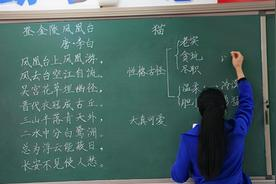 登金陵凤凰台
唐·李白
凤凰台上凤凰游，
凤去台空江自流。
吴宫花草埋幽径，
晋代衣冠成古丘。
三山半落青天外，
二水中分白鹭洲。
总为浮云能蔽日，
长安不见使人愁。
猫
性格古怪
老实
贪玩
尽职
温柔
胆
大真可爱